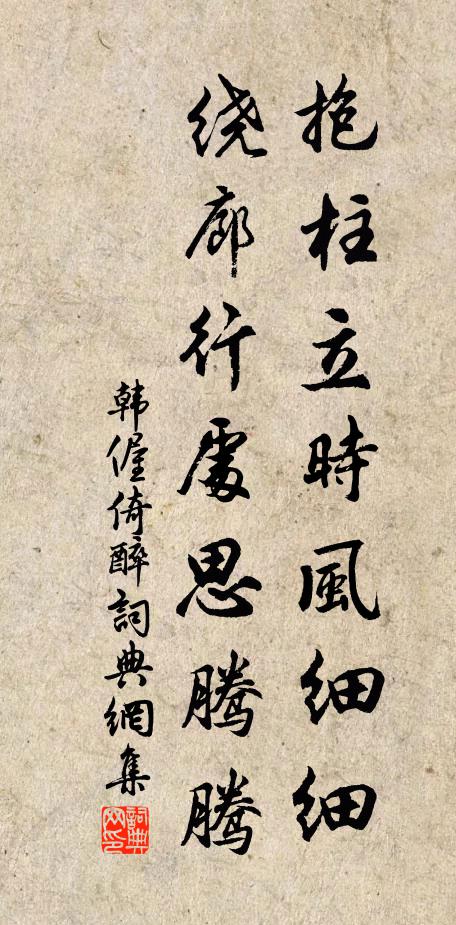 抱柱立時風細細
绕廊行處思騰騰
韩偓倚醉詞典網集
詞典网印